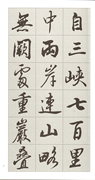 自三峽七百里
中兩岸連山略
無闕處重巖疊